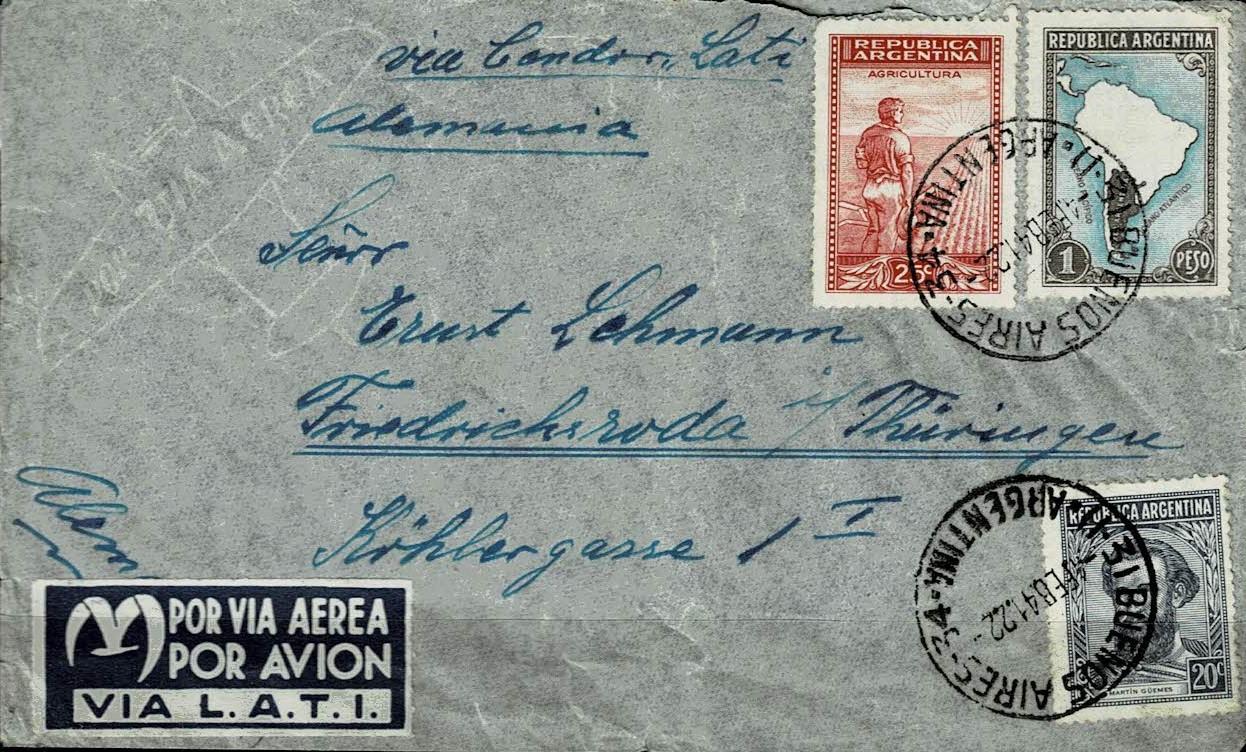 via Condor, Lati
Alemania
POR VIA AEREA
Señor
Ernst Lehmann
Friedrichsroda i/ Thüringen
Köhlergasse 1 I
Alem
POR VIA AEREA
POR AVION
VIA L.A.T.I.
REPUBLICA
ARGENTINA
AGRICULTURA
25c
REPUBLICA ARGENTINA
OCEANO ATLANTICO
1 PESO
BUENOS AIRES
ARGENTINA
FEB 41 22
REPUBLICA ARGENTINA
MARTÍN GÜEMES
20c
BUENOS AIRES-34
ARGENTINA
FEB 41 22